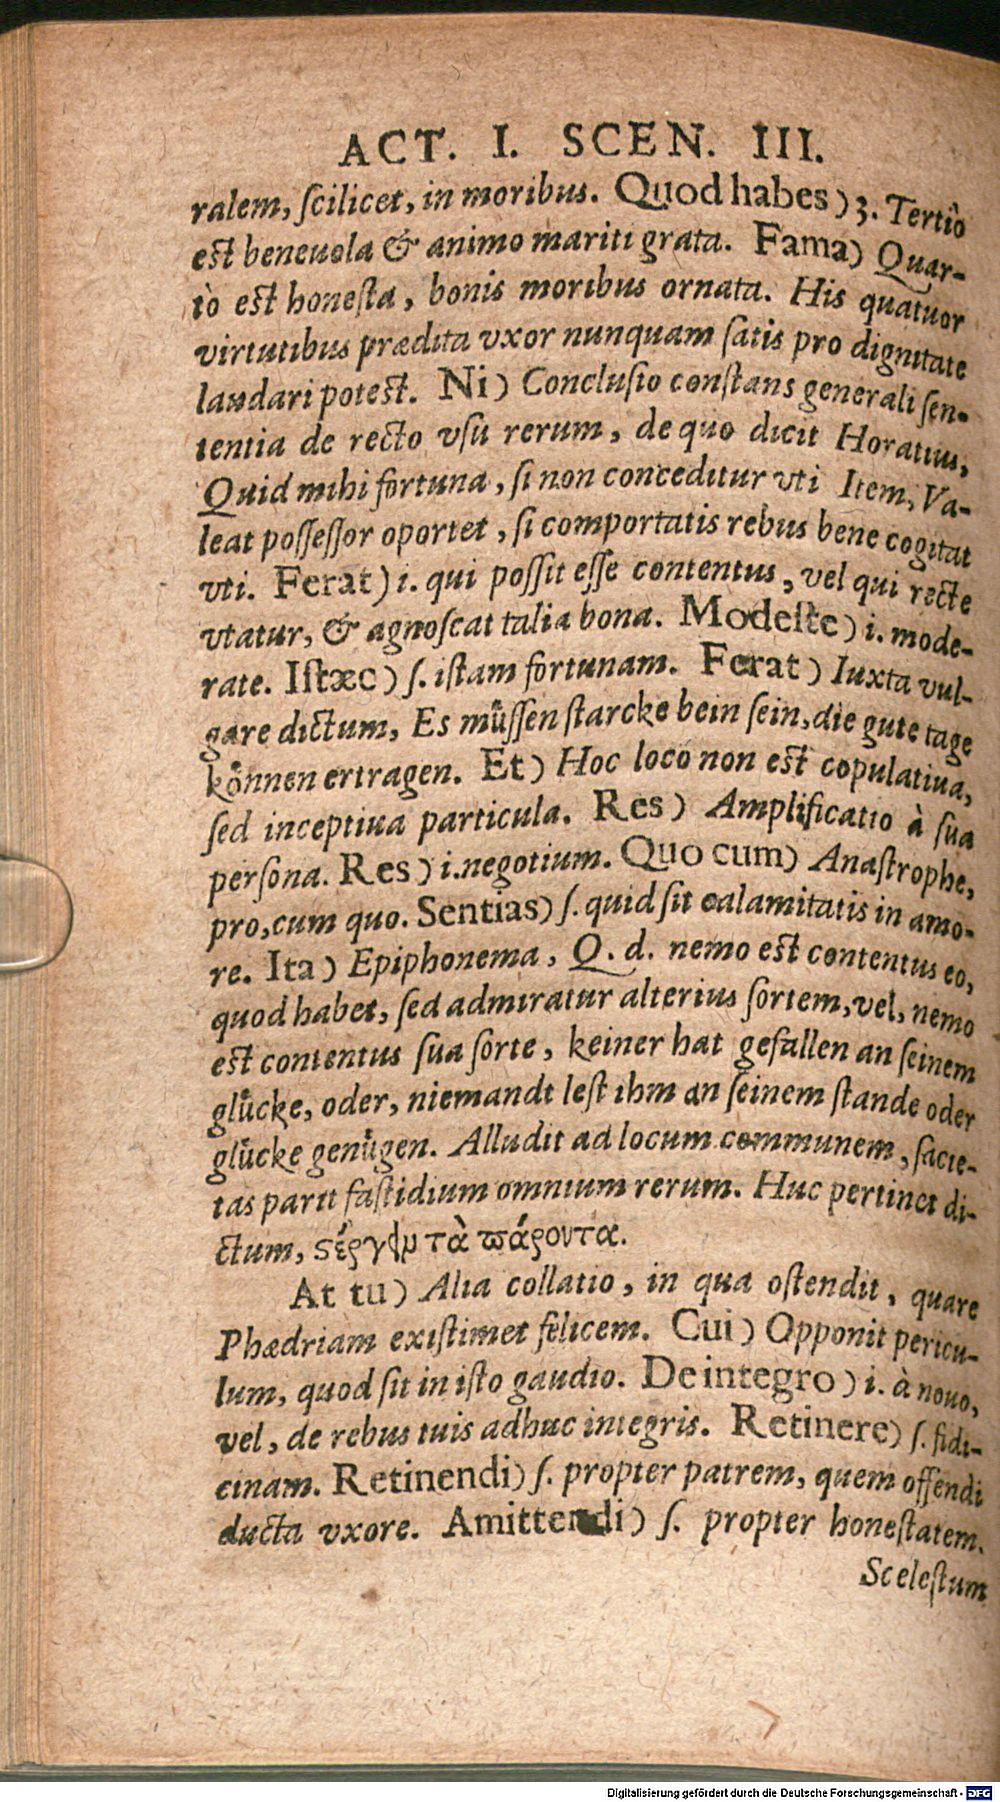 ACT. I. SCEN. III.
ralem, ſcilicet, in moribus. Quod habes) 3. Tertiò
est beneuola & animo mariti grata. Fama) Quar-
tò est honeſta, bonis moribus ornata. His quatuor
virtutibus prædita vxor nunquam ſatis pro dignitate
laudari potest. Ni) Concluſio conſtans generali ſen-
tentia de recto vſu rerum, de quo dicit Horatius,
Quid mihi fortuna, ſi non conceditur vti Item, Va-
leat poſſeſſor oportet, ſi comportatis rebus bene cogitat
vti. Ferat) i. qui poſſit eſſe contentus, vel qui recte
vtatur, & agnoſcat talia bona. Modeſte) i. mode-
rate. Iſtæc) ſ. iſtam fortunam. Ferat) Iuxta vul-
gare dictum, Es müſſen ſtarcke bein ſein, die gute tage
können ertragen. Et) Hoc loco non est copulatiua,
ſed inceptiua particula. Res) Amplificatio à ſua
perſona. Res) i. negotium. Quo cum) Anaſtrophe,
pro, cum quo. Sentias) ſ. quid ſit calamitatis in amo-
re. Ita) Epiphonema, Q. d. nemo est contentus eo,
quod habet, ſed admiratur alterius ſortem, vel, nemo
est contentus ſua ſorte, keiner hat gefallen an ſeinem
glücke, oder, niemandt leſt ihm an ſeinem ſtande oder
glücke genügen. Alludit ad locum communem, ſacie-
tas parit faſtidium omnium rerum. Huc pertinet di-
ctum, ϛέργειν τὰ πάροντα.
At tu) Alia collatio, in qua oſtendit, quare
Phædriam exiſtimet felicem. Cui) Opponit pericu-
lum, quod ſit in iſto gaudio. De integro) i. à nouo,
vel, de rebus tuis adhuc integris. Retinere) ſ. fidi-
cinam. Retinendi) ſ. propter patrem, quem offendi
ducta vxore. Amittendi) ſ. propter honeſtatem.
Sceleſtum
Digitalisierung gefördert durch die Deutsche Forschungsgemeinschaft - DFG